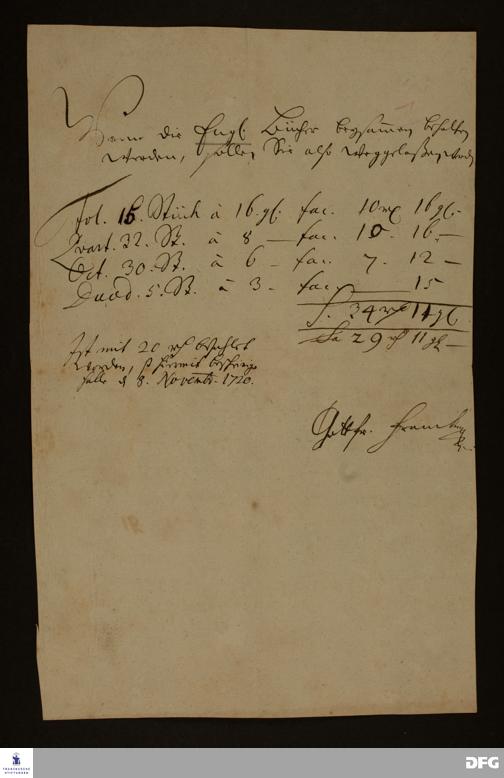 Wenn die Engl. Bücher beysammen behalten
werden, sollen Sie also weggelaßen werden
Fol. 16. Stück à 16. gl. fac. 10 rl 16 gl.
Quart. 32. St. à 8 — fac. 10. 16. —
Oct. 30. St. à 6 — fac. 7. 12 —
Duod. 5. St. à 3 — fac. 15
S. 34 rl 11 gl.
Sa 29 rl 11 gl —
Ist mit 20 rl bezahlet
worden, hiermit
Halle d. 8. Novembr. 1720.
Gottfr.
FRANCKESCHE STIFTUNGEN
DFG